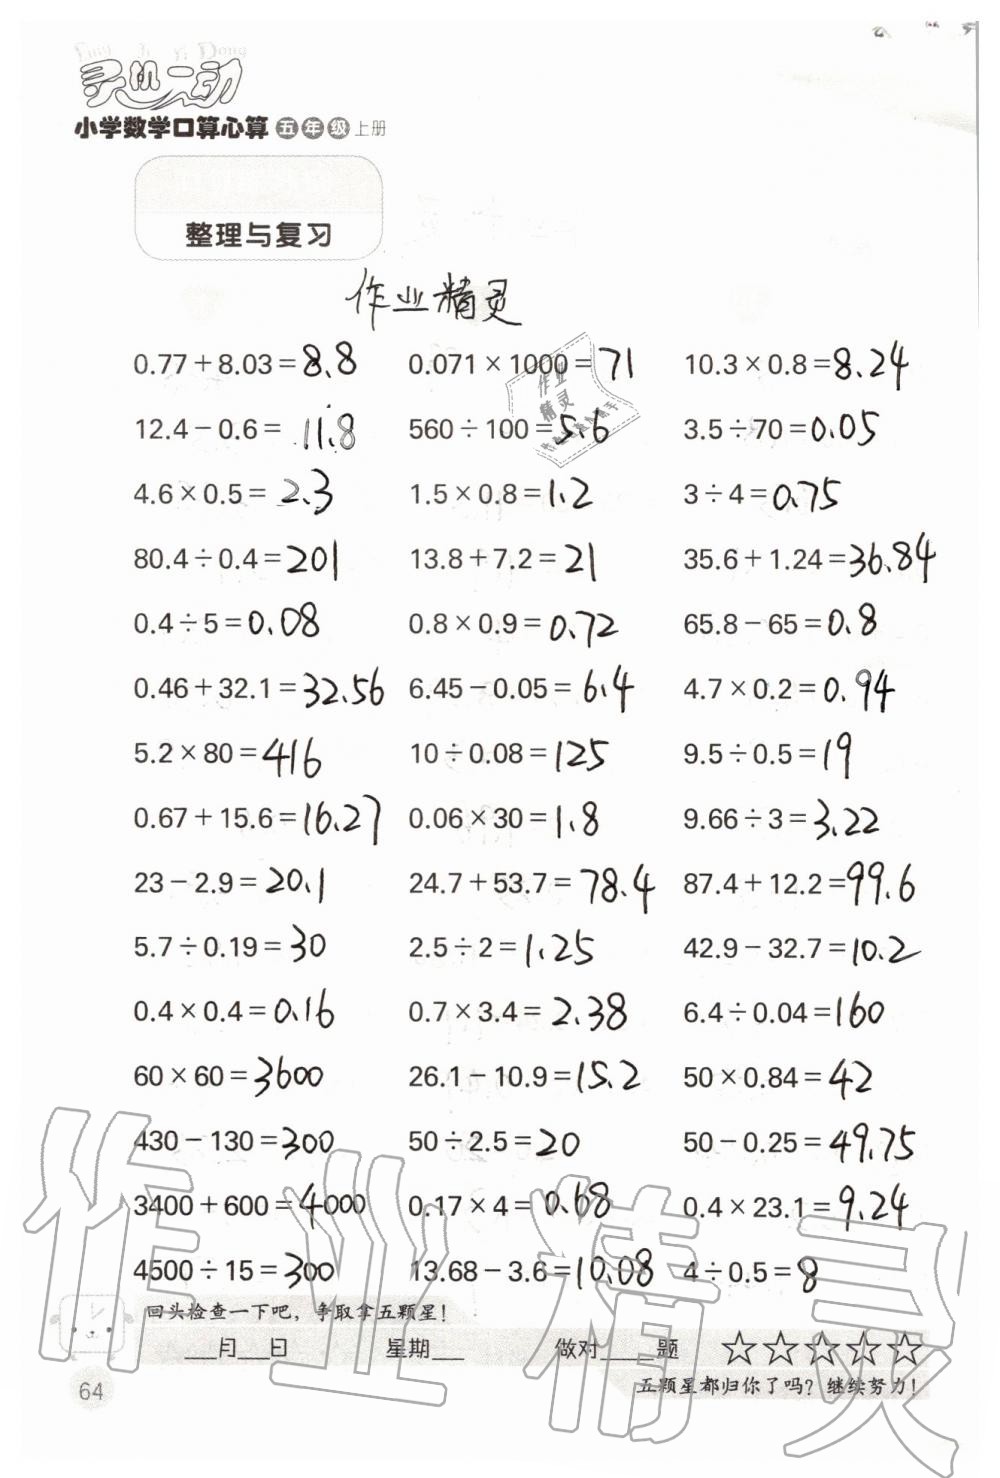 Ling Ji Yi Dong
灵机一动
小学数学口算心算 五年级 上册
整理与复习
作业精灵
0.77+8.03=8.8 0.071×1000=71 10.3×0.8=8.24
12.4-0.6=11.8 560÷100=5.6 3.5÷70=0.05
4.6×0.5=2.3 1.5×0.8=1.2 3÷4=0.75
80.4÷0.4=201 13.8+7.2=21 35.6+1.24=36.84
0.4÷5=0.08 0.8×0.9=0.72 65.8-65=0.8
0.46+32.1=32.56 6.45-0.05=6.4 4.7×0.2=0.94
5.2×80=416 10÷0.08=125 9.5÷0.5=19
0.67+15.6=16.27 0.06×30=1.8 9.66÷3=3.22
23-2.9=20.1 24.7+53.7=78.4 87.4+12.2=99.6
5.7÷0.19=30 2.5÷2=1.25 42.9-32.7=10.2
0.4×0.4=0.16 0.7×3.4=2.38 6.4÷0.04=160
60×60=3600 26.1-10.9=15.2 50×0.84=42
430-130=300 50÷2.5=20 50-0.25=49.75
3400+600=4000 0.17×4=0.68 0.4×23.1=9.24
4500÷15=300 13.68-3.6=10.08 4÷0.5=8
作业精灵
回头检查一下吧，争取拿五颗星！
___月___日 星期___ 做对____题 ☆☆☆☆☆
五颗星都归你了吗？继续努力！
64